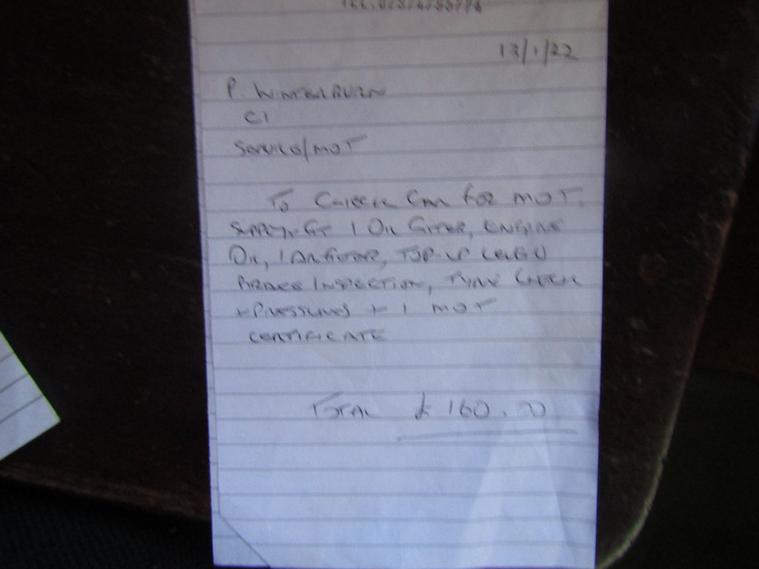 13/1/22
P. WINTERBURN
C1
SERVICE/MOT
TO CHECK CAR FOR MOT.
SUPPLY+FIT 1 OIL FILTER, ENGINE
OIL, 1 AIR FILTER, TOP-UP LEVELS
BRAKE INSPECTION, TYRE CHECK
+ PRESSURES + 1 MOT
CERTIFICATE
TOTAL £160.00